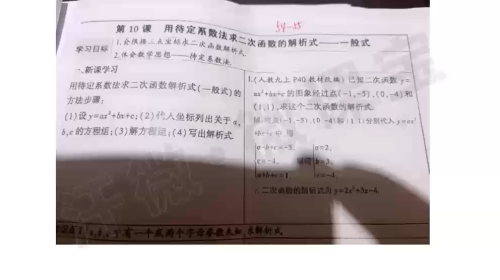 54-55
第 10 课 用待定系数法求二次函数的解析式——一般式
学习目标
1.会根据三点坐标求二次函数解析式.
2.体会数学思想——待定系数法.
一、新课学习
用待定系数法求二次函数解析式(一般式)的
方法步骤:
(1)设y=ax²+bx+c;(2)代入坐标列出关于a,
b,c的方程组;(3)解方程组;(4)写出解析式.
1.(人教九上P40教材改编)已知二次函数y=
ax²+bx+c的图象经过点(-1,-5),(0,-4)和
(1,1).求这个二次函数的解析式.
(-1,-5),(0,-4)和(1,1)分别代入y=ax²
+bx+c
a-b+c=-5, a=2,
c=-4, b=3,
a+b+c=1
∴二次函数的解析式为y=2x²+3x-4.
有一个或两个字母参数未知,求解析式